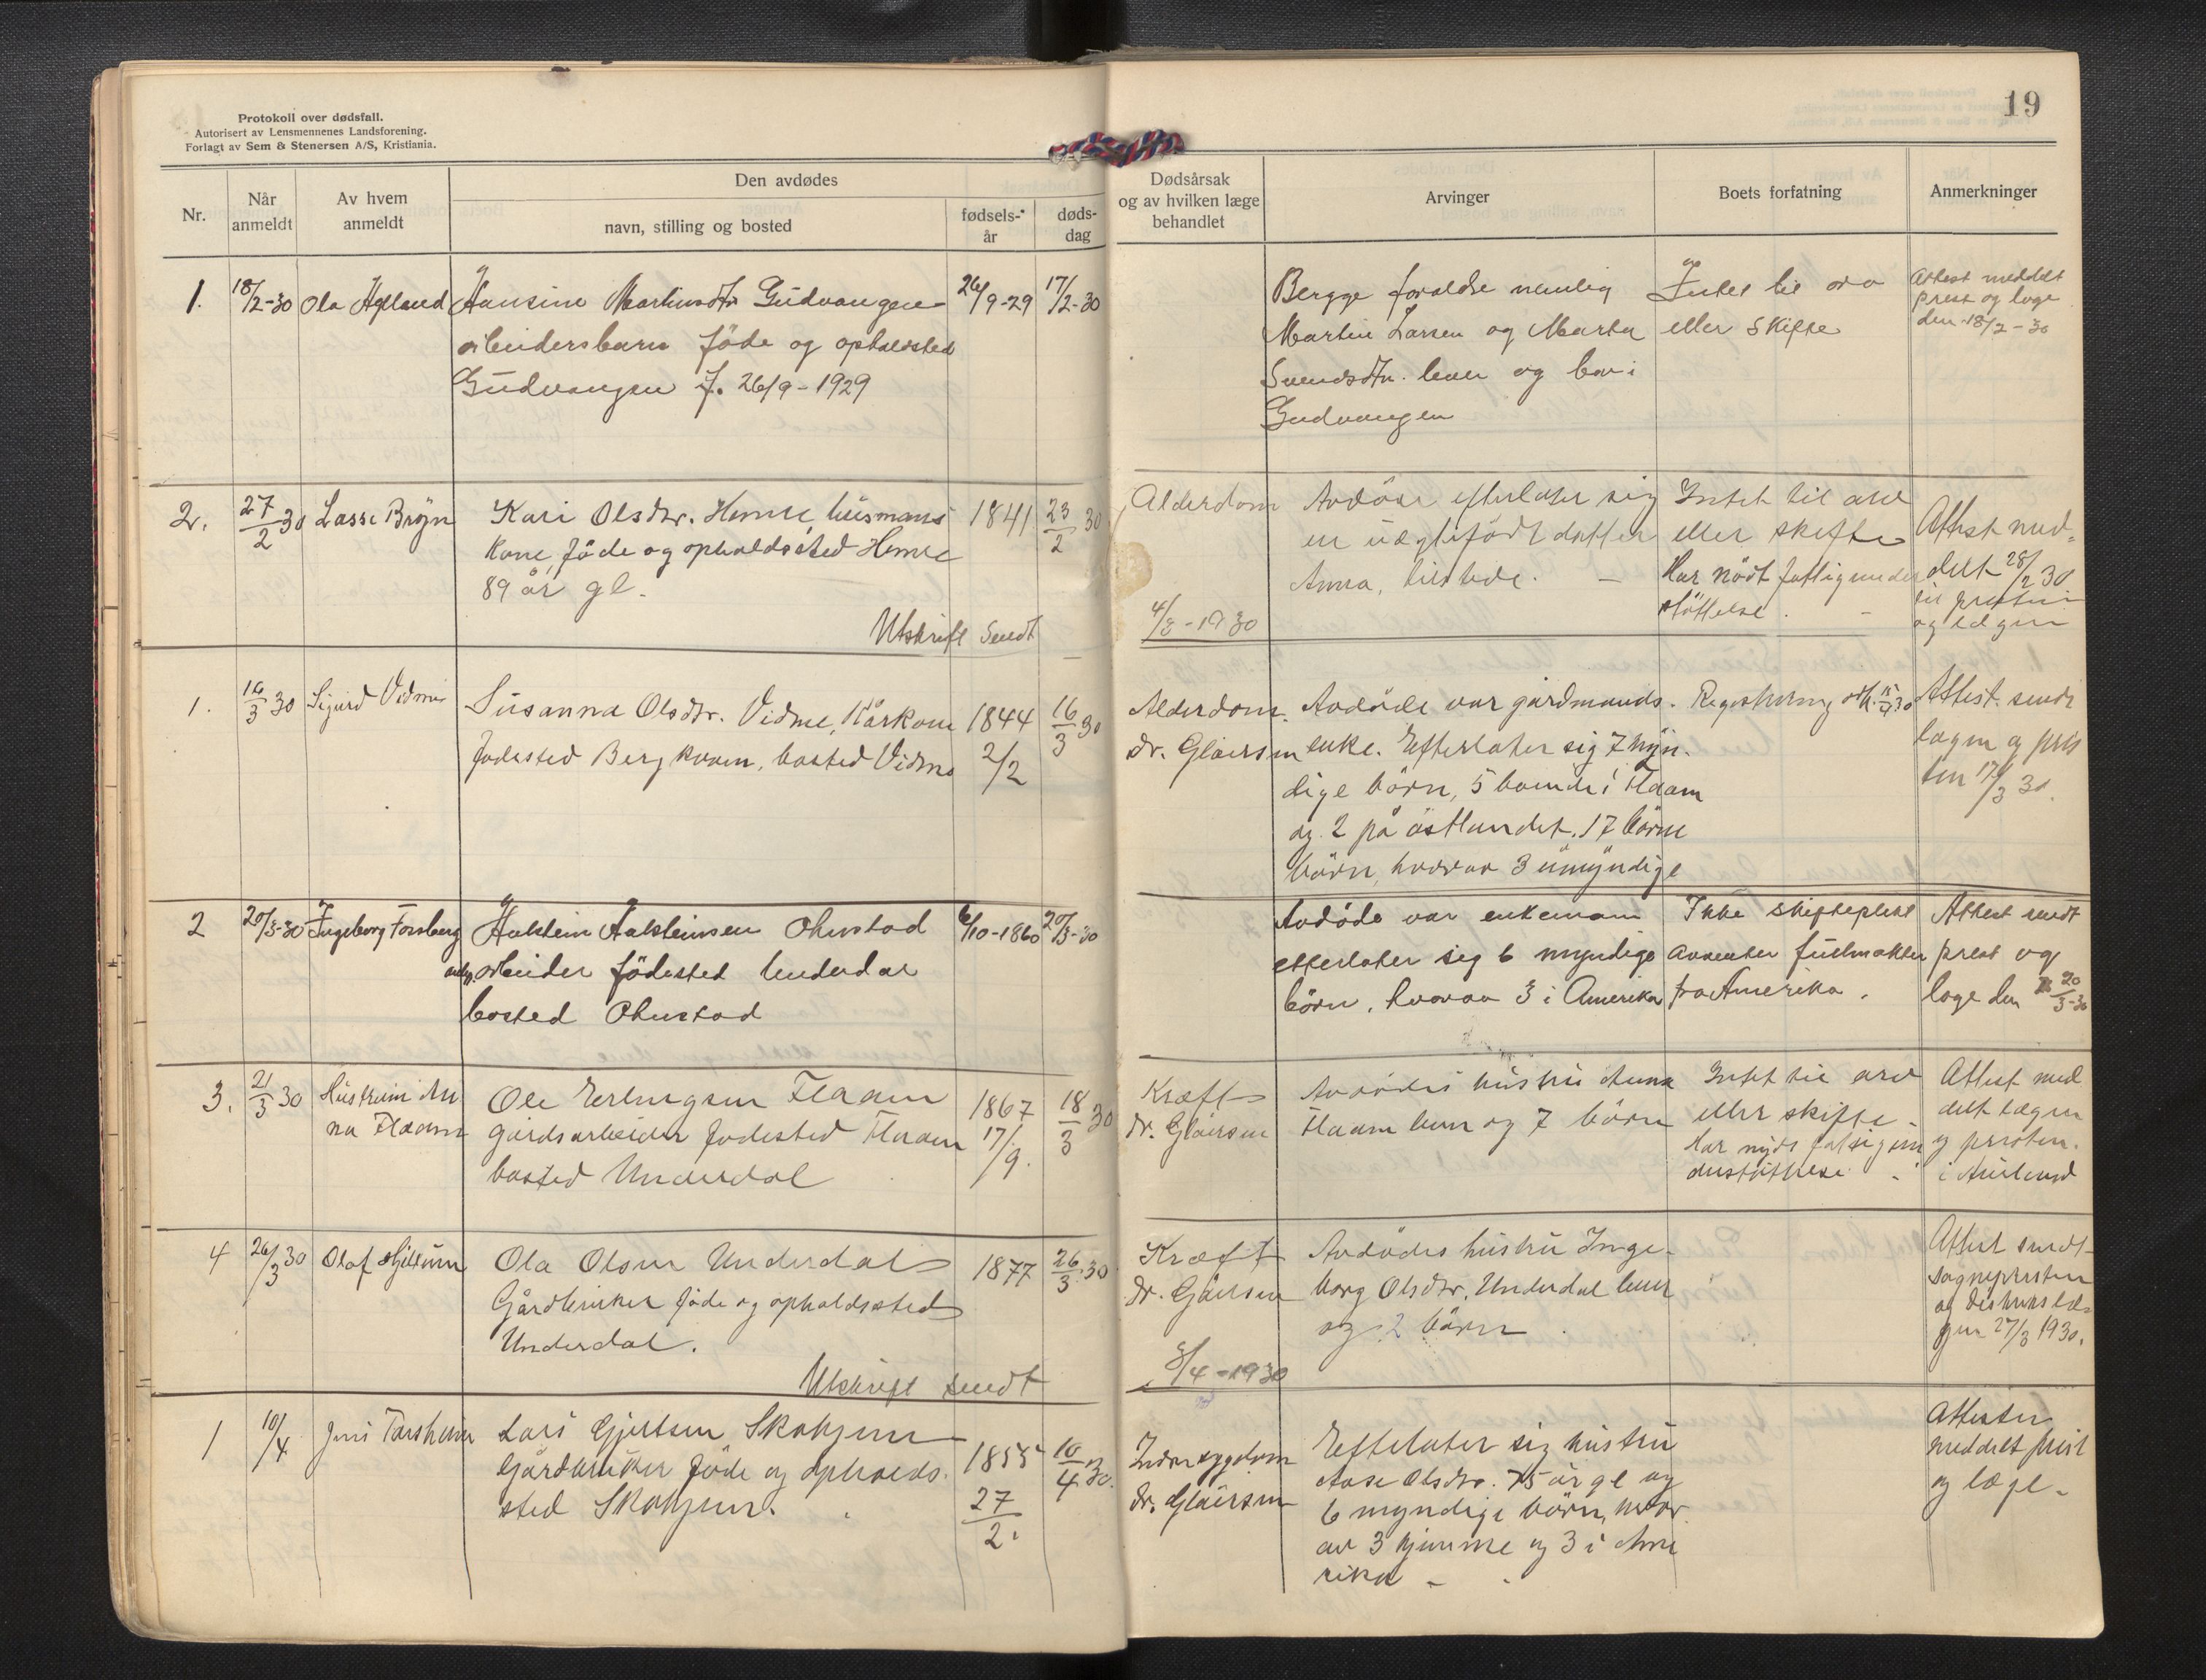 Protokoll over dødsfall.
Autorisert av Lensmennenes Landsforening.
Forlagt av Sem & Stenersen A/S, Kristiania.
Nr.
Når
anmeldt
Av hvem
anmeldt
Den avdødes
navn, stilling og bosted
fødsels-
år
døds-
dag
19
Dødsårsak
og av hvilken læge
behandlet
Arvinger
Boets forfatning
Anmerkninger
1.
18/2-30
Ola Hylland
Hansine Martinsdtr Gudvangen
arbeidersbarn føde og opholdsted
Gudvangen f. 26/9-1929
26/9-29
17/2-30
Begge foreldre nemlig
Martin Larsen og Marta
Svendsdtr. lever og bor i
Gudvangen
Intet til arv
eller skifte
Attest meddelt
prest og læge
den 18/2-30
2.
27/2 30
Lasse Brÿn
Kari Olsdtr. Hemre, husmans
kone, føde og opholdssted Hemre
89 år gl.
Utskrift sendt
1841
23/2 30
Alderdom
4/3-1930
Avdøde efterlater sig
en uægtefödt datter
Anna, tilstede. –
Intet til arv
eller skifte
Har nödt fattigunder
støttelse. –
Attest med-
delt 28/2 30
til presten
og lægen
1.
16/3 30
Sigurd Vidme
Susanna Olsdtr. Vidme, Kårkone
fødested Bergkvam, bosted Vidme
1844
2/2
16/3 30
Alderdom.
dr. Gläersen
Avdøde var gårdmands.
enke. Efterlater sig 7 myn.
dige börn, 5 boende i Flaam
og 2 på østlandet. 17 børne
børn, hvorav 3 umyndige
Attest. sendt
lægen og pres
ten 17/3 30.
2
20/3-30
Ingeborg Forsberg
Halstein Halsteinsen
arbeider födested Underdal
bosted
6/10-1860
20/3-30
Avdøde var enkemann
etterlater sig 6 myndige
børn, hvorav 3 i Amerika
Ikke skifteplikt
avventer fullmakter
fra Amerika.
Attest sendt
prest og
læge den 20/3-30
3.
21/3 30
Hustruen An
na Flaam
Ole Erlingsen Flaam
gårdsarbeider fødested Flaam
bosted Underdal
1867
17/9.
18/3 30
Kræft
dr. Gläersen
Avdødes hustru Anna
Flaam lever og 7 børn
Intet til arv
eller skifte.
Har nydt fattigun
derstøttelse.
Attest med
delt lægen
og presten.
i Aurland
4
26/3 30
Olaf Skjerum
Ola Olsen Underdal
Gårdbruker føde og opholdssted
Underdal.
Utskrift sendt
1877
26/3 30
Kræft
dr. Gläersen
8/4-1930
Avdødes hustru Inge-
borg Olsdtr. Underdal lever
og 2 börn
Attest sendt
sognepresten
og distriktslæ-
gen 27/3 1930.
1
10/4
Jens Torsheim
Lars Gjertsen Skahjem
Gårdbruker føde og opholds.
sted Skahjem.
1855
27/2.
10/4 30.
dr. Gläersen
Efterlater sig hustru
Aase Olsdtr. 75 år gl og
6 myndige børn, hvor
av 3 hjemme og 3 i Ame
rika –
Attester
meddelt prest
og læge.